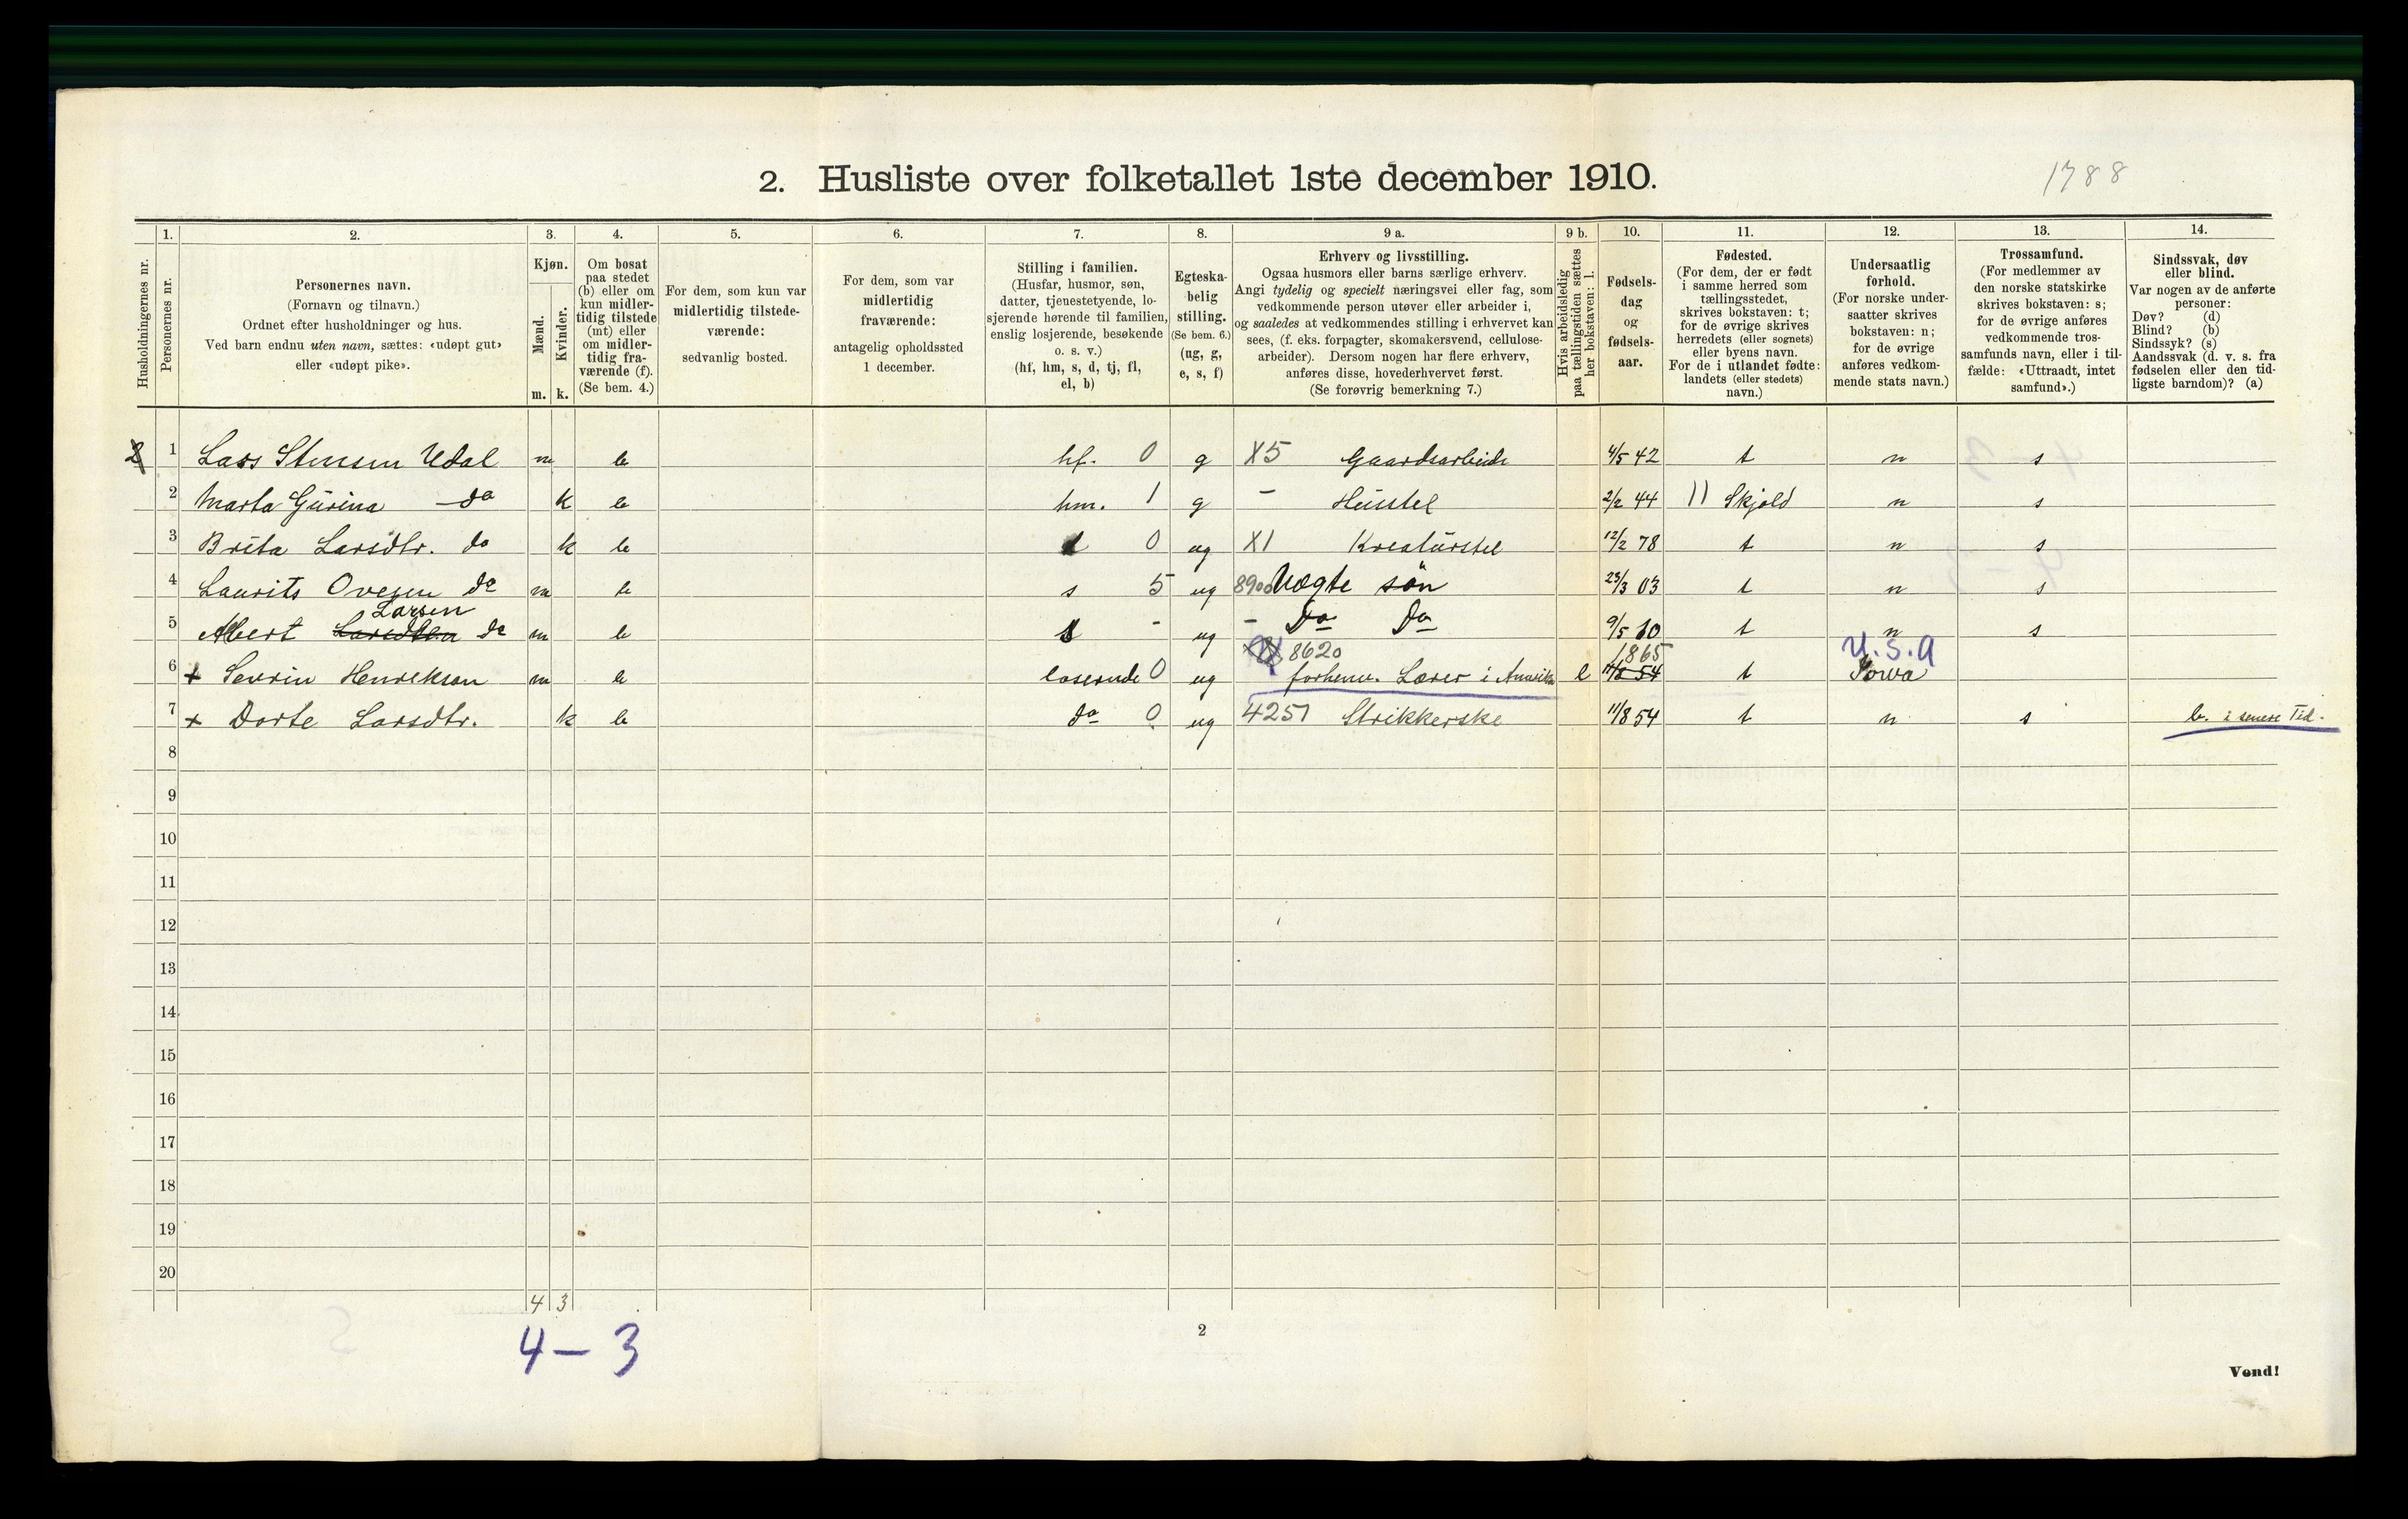 2. Husliste over folketallet 1ste december 1910.
1788
1. 2. 3. 4. 5. 6. 7. 8. 9 a. 9 b. 10. 11. 12. 13. 14.
Husholdningernes nr.
Personernes nr.
Personernes navn.
(Fornavn og tilnavn.)
Ordnet efter husholdninger og hus.
Ved barn endnu uten navn, sættes: «udøpt gut»
eller «udøpt pike».
Kjøn.
Mænd.
Kvinder.
m. k.
Om bosat
paa stedet
(b) eller om
kun midler-
tidig tilstede
(mt) eller
om midler-
tidig fra-
værende (f).
(Se bem. 4.)
For dem, som kun var
midlertidig tilstede-
værende:
sedvanlig bosted.
For dem, som var
midlertidig
fraværende:
antagelig opholdssted
1 december.
Stilling i familien.
(Husfar, husmor, søn,
datter, tjenestetyende, lo-
sjerende hørende til familien,
enslig losjerende, besøkende
o. s. v.)
(hf, hm, s, d, tj, fl,
el, b)
Egteska-
belig
stilling.
(Se bem. 6.)
(ug, g,
e, s, f)
Erhverv og livsstilling.
Ogsaa husmors eller barns særlige erhverv.
Angi tydelig og specielt næringsvei eller fag, som
vedkommende person utøver eller arbeider i,
og saaledes at vedkommendes stilling i erhvervet kan
sees, (f. eks. forpagter, skomakersvend, cellulose-
arbeider). Dersom nogen har flere erhverv,
anføres disse, hovederhvervet først.
(Se forøvrig bemerkning 7.)
Hvis arbeidsledig
paa tællingstiden sættes
her bokstaven: l.
Fødsels-
dag
og
fødsels-
aar.
Fødested.
(For dem, der er født
i samme herred som
tællingsstedet,
skrives bokstaven: t;
for de øvrige skrives
herredets (eller sognets)
eller byens navn.
For de i utlandet fødte:
landets (eller stedets)
navn.)
Undersaatlig
forhold.
(For norske under-
saatter skrives
bokstaven: n;
for de øvrige
anføres vedkom-
mende stats navn.)
Trossamfund.
(For medlemmer av
den norske statskirke
skrives bokstaven: s;
for de øvrige anføres
vedkommende tros-
samfunds navn, eller i til-
fælde: «Uttraadt, intet
samfund».)
Sindssvak, døv
eller blind.
Var nogen av de anførte
personer:
Døv? (d)
Blind? (b)
Sindssyk? (s)
Aandssvak (d. v. s. fra
fødselen eller den tid-
ligste barndom)? (a)
2 1 Lars Stensen Udal m b hf. 0 g X5 Gaardsarbeide 4/5 42 t n s
2 Marta Gurina do k b hm. 1 g – Husstel 2/2 44 11 Skjold n s
3 Brita Larsdtr. do k b d 0 ug X1 Kreaturstel 12/2 78 t n s
4 Laurits Ovesen do m b s 5 ug 8900 Vægte søn 23/3 03 t n s
Larsen
5 Albert Larsdtn do m b s - ug – Do Do 9/5 10 t n s
8620 1865 U.S.A
6 + Sevrin Henreksen m b loserende 0 ug forhenv. Lærer i Amerika l 11/8 54 t Iowa
7 + Dorte Larsdtr. k b do 0 ug 4251 Strikkerske 11/8 54 t n s b. i senere Tid.
8
9
10
11
12
13
14
15
16
17
18
19
20
4 3
4 – 3
2
Vend!